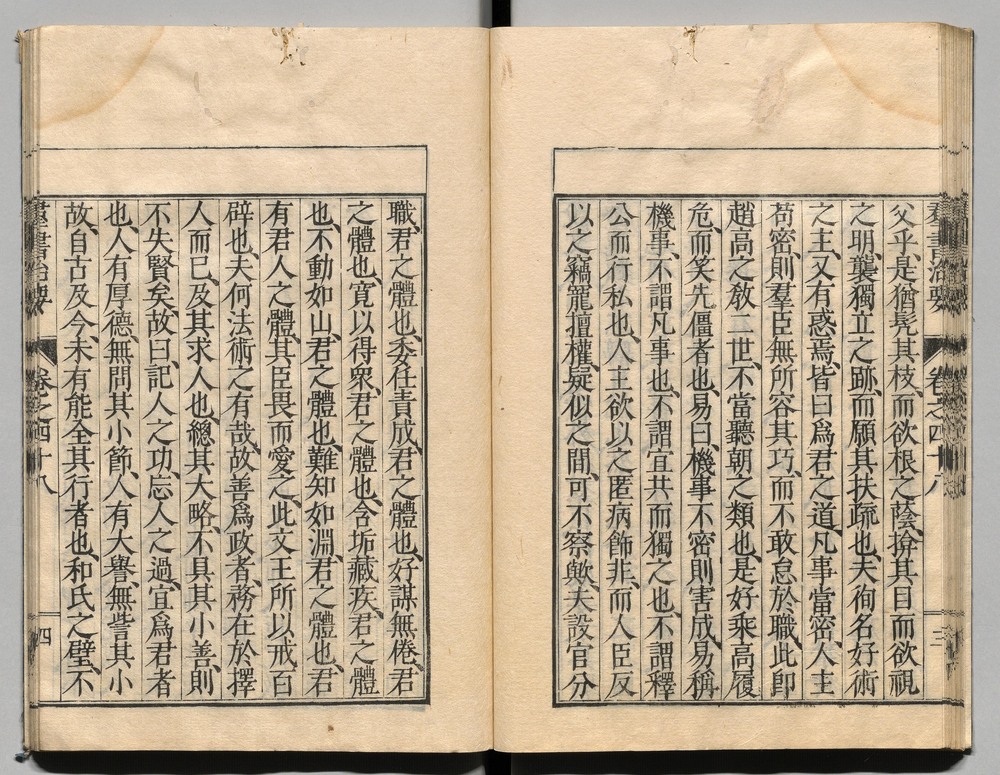 羣書治要 卷之四十八 三
父乎、是猶髡其枝、而欲根之蔭、揜其目而欲視
之明、襲獨立之跡、而願其扶疏也、夫徇名好術
之主、又有惑焉、皆曰爲君之道、凡事當密、人主
苟密、則羣臣無所容其巧、而不敢怠於職、此即
趙高之敎二世、不當聽朝之類也、是好乘高履
危、而笑先僵者也、易曰、機事不密則害成、易稱
機事、不謂凡事也、不謂宜共而獨之也、不謂釋
公而行私也、人主欲以之匿病飾非、而人臣反
以之竊寵擅權、疑似之間、可不察歟、夫設官分
職、君之體也、委任責成、君之體也、好謀無倦、君
之體也、寬以得衆、君之體也、含垢藏疾、君之體
也、不動如山、君之體也、難知如淵、君之體也、君
有君人之體、其臣畏而愛之、此文王所以戒百
辟也、夫何法術之有哉、故善爲政者、務在於擇
人而已、及其求人也、總其大略、不具其小善、則
不失賢矣、故曰、記人之功、忘人之過、宜爲君者
也、人有厚德、無問其小節、人有大譽、無訾其小
故、自古及今、未有能全其行者也、和氏之璧、不
羣書治要 卷之四十八 四